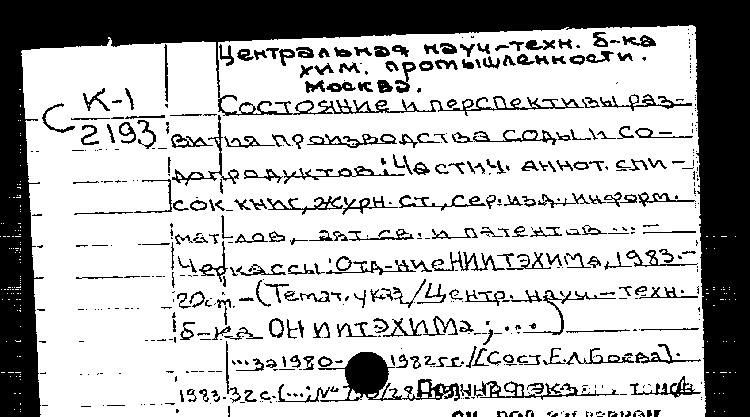 Центральная науч-техн. б-ка
хим. промышленности.
Москва.
С К-1
2193
Состояние и перспективы раз-
вития производства соды и со-
допродуктов: Частич. аннот. спи-
сок книг, журн. ст., сер. изд., информ.
мат-лов, авт. св. и патентов ... -
Черкассы: Отд-ние НИИТЭХИМа, 1983.-
20см.-(Темат. указ/Центр. науч.-техн.
б-ка ОНИИТЭХИМа; ...)
...за 1980- 1982гг. /[Сост. Е.Л. Боева].
1983. 32с. (...; №